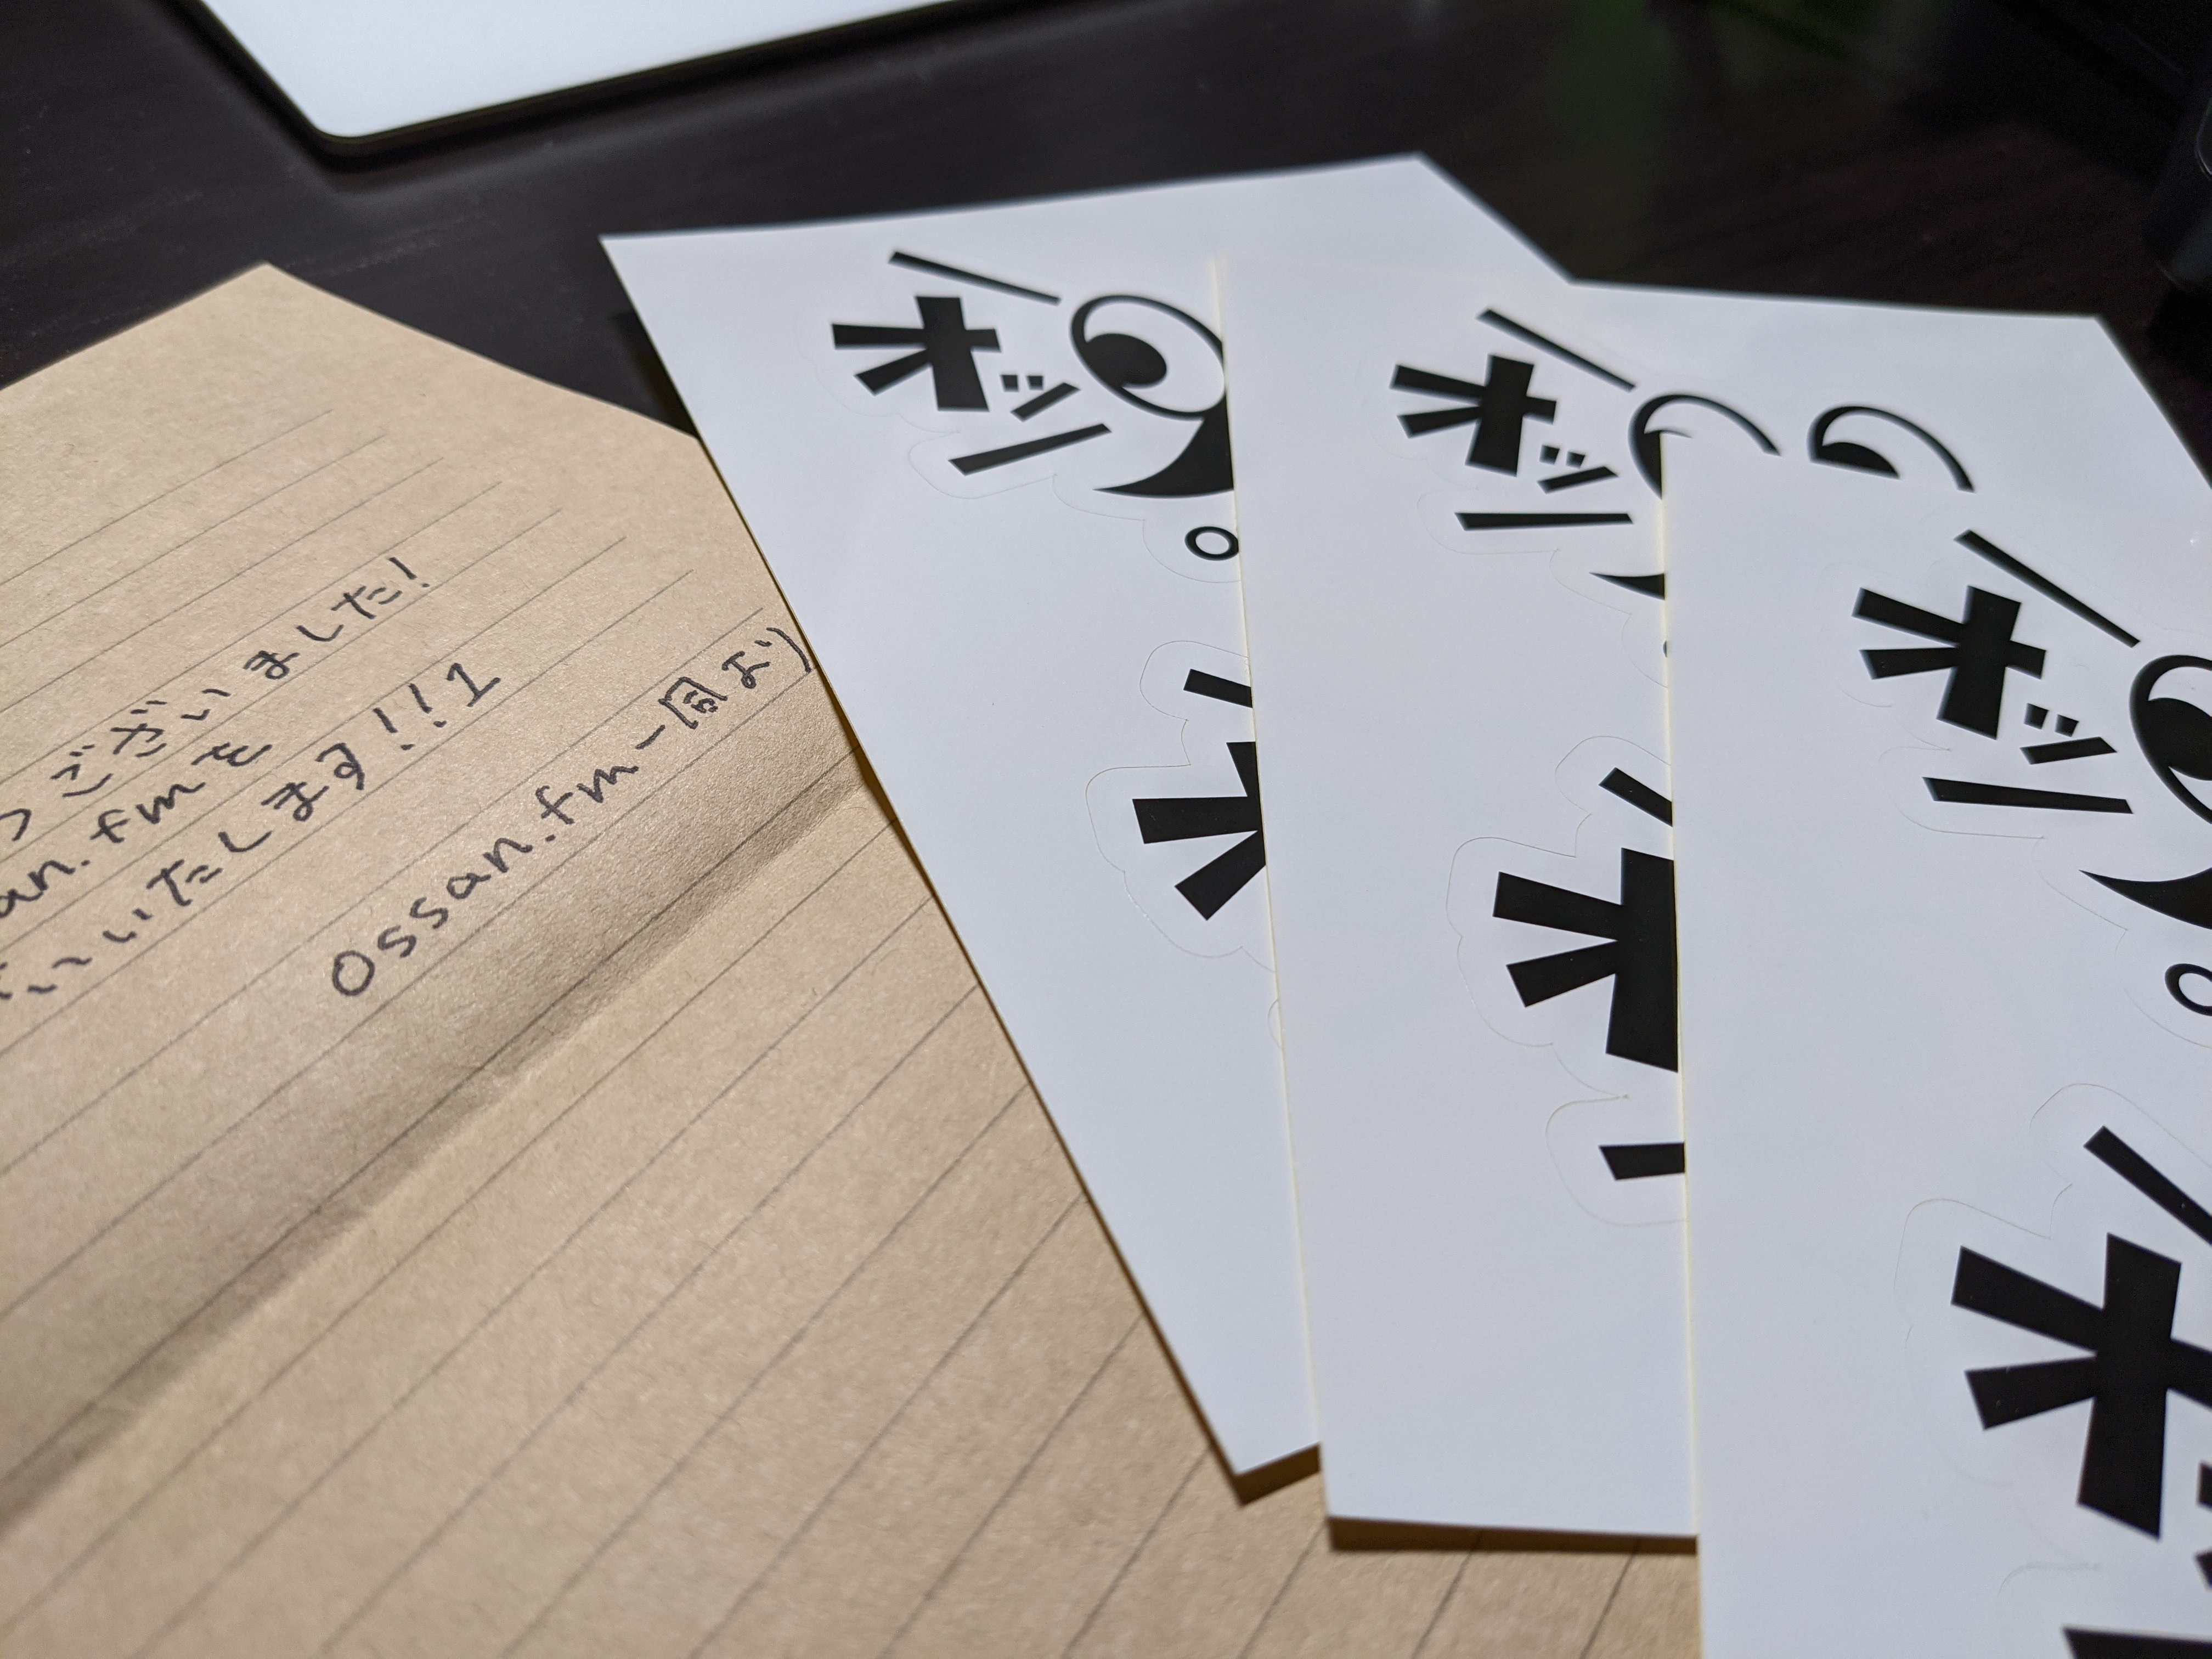 ございました!
an.fmを
いたします!!1
Ossan.fm一同より
オッ
オッ
オッ